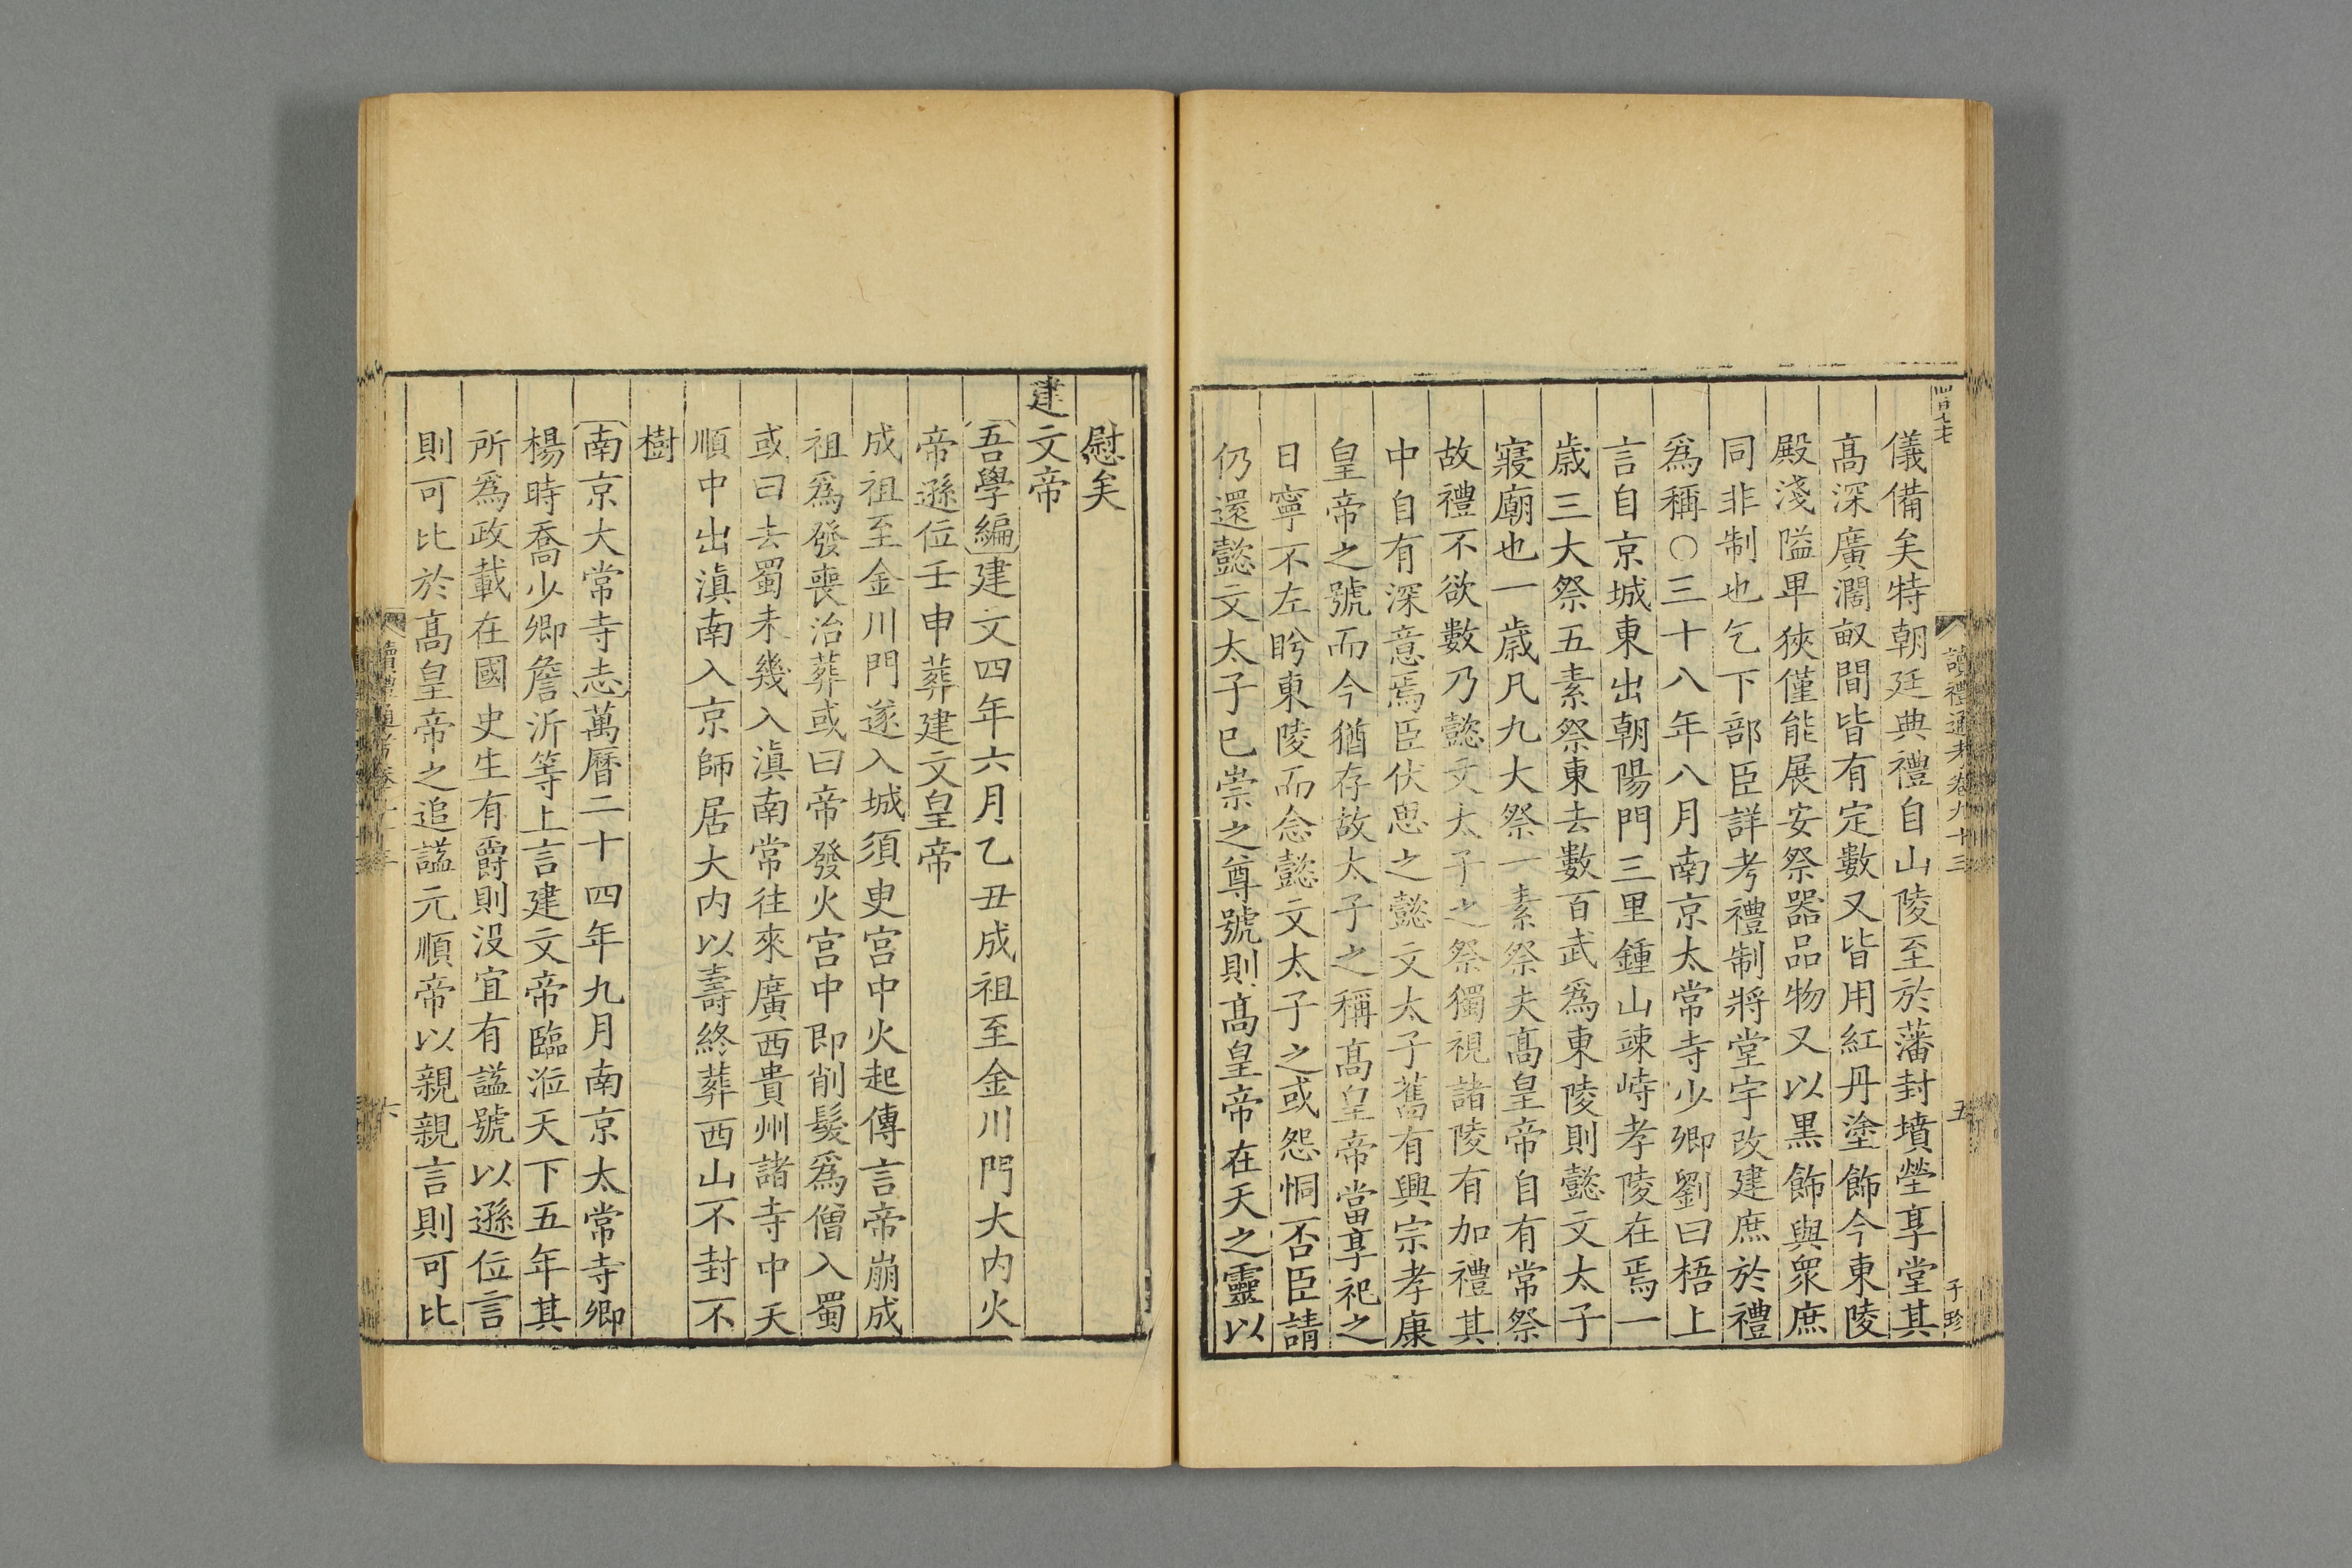 讀禮通考卷九十三
五
子珍
儀備矣特朝廷典禮自山陵至於藩封墳塋享堂其
髙深廣濶㽘間皆有定數又皆用紅丹塗飾今東陵
殿淺隘卑狹僅能展安祭器品物又以黒飾與衆庶
同非制也乞下部臣詳考禮制將堂宇改建庶於禮
爲稱○三十八年八月南京太常寺少卿劉曰梧上
言自京城東出朝陽門三里鍾山竦峙孝陵在焉一
歳三大祭五素祭東去數百武爲東陵則懿文太子
寢廟也一歳凡九大祭一素祭夫髙皇帝自有常祭
故禮不欲數乃懿文太子之祭獨視諸陵有加禮其
中自有深意焉臣伏思之懿文太子舊有興宗孝康
皇帝之號而今猶存故太子之稱髙皇帝當享祀之
日寧不左盻東陵而念懿文太子之或怨恫否臣請
仍還懿文太子已崇之尊號則髙皇帝在天之靈以
慰矣
建文帝
吾學編建文四年六月乙丑成祖至金川門大内火
帝遜位壬申葬建文皇帝
成祖至金川門遂入城須臾宫中火起傳言帝崩成
祖爲發喪治葬或曰帝發火宫中即削髮爲僧入蜀
或曰去蜀未幾入滇南常往來廣西貴州諸寺中天
順中出滇南入京師居大内以壽終葬西山不封不
樹
南京大常寺志萬曆二十四年九月南京太常寺卿
楊時喬少卿詹沂等上言建文帝臨涖天下五年其
所爲政載在國史生有爵則没宜有謚號以遜位言
則可比於髙皇帝之追謚元順帝以親親言則可比
讀禮通考卷九十三
六